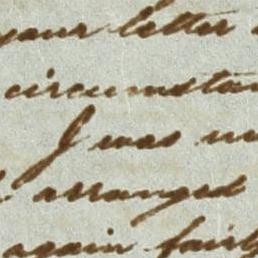 your letter
circumstan
I was
arranged
again fairly